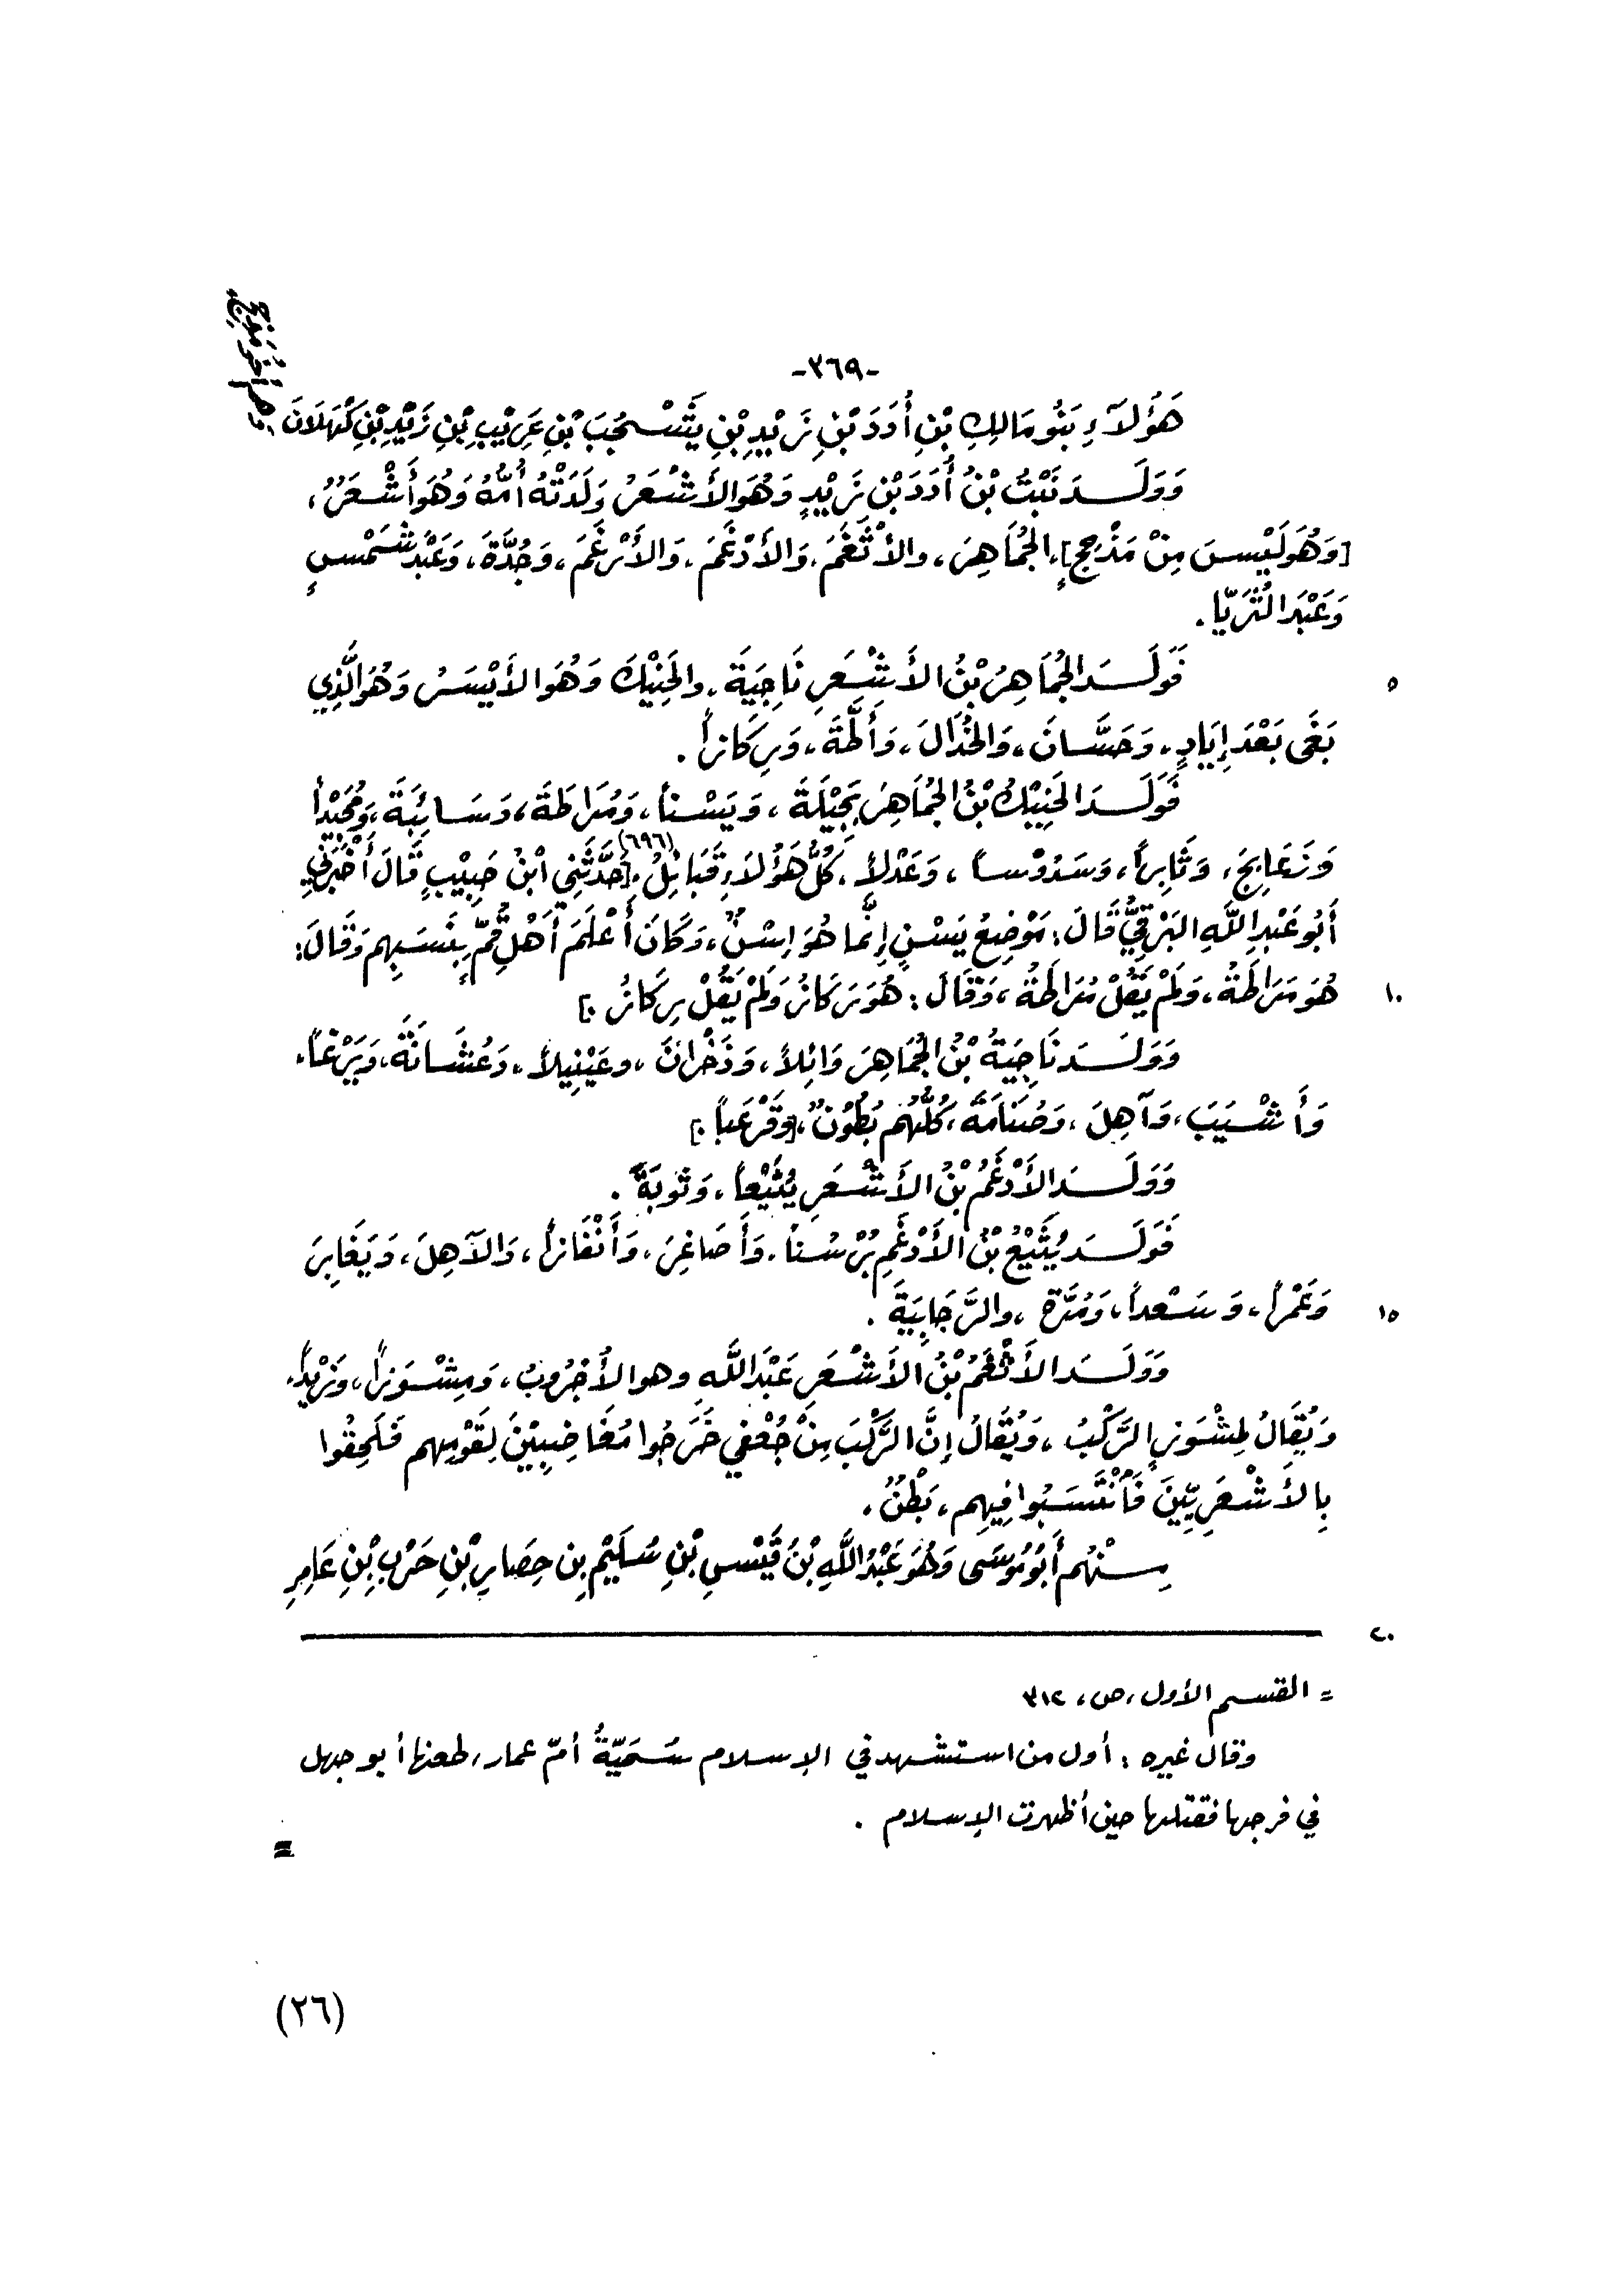 -٣٦٩-
هَؤُلَاءِ بَنُو مَالِكِ بْنِ أُدَدَ بْنِ زَيْدِ بْنِ يَشْجُبَ بْنِ عَرِيْبِ بْنِ زَيْدِ بْنِ كَهْلَانَ
وَوَلَدَ نَبْتُ بْنُ أُدَدَ بْنِ زَيْدٍ وَهُوَ الأَشْعَرُ وَلَدَتْهُ أُمُّهُ وَهُوَ أَشْعَرُ،
[وَهُوَ لَيْسَ مِنْ مَذْحِجٍ]، الجُمَاهِرَ، والأَثْغَمَ، وَالأَدْغَمَ، وَالأَرْغَمَ، وَجُدَّةَ، وَعَبْدَ شَمْسٍ
وَعَبْدَ الثُّرَيَّا.
فَوَلَدَ الجُمَاهِرُ بْنُ الأَشْعَرِ نَاجِيَةَ، والحَنِيْكَ وَهُوَ الأَيْسَرُ وَهُوَ الَّذِي
٥
بَغَى بَعْدَ إِيَادٍ، وَحَسَّانَ، وَالخُذَالَ، وَأَلْهَةَ، وَرِكَازاً.
فَوَلَدَ الحَنِيْكُ بْنُ الجُمَاهِرَ بَجِيْلَةَ، وَيَسْناً، وَمُرَاطَةَ، وَسَائِبَةَ، وَمُجَيْداً
وَزَعَابِجَ، وَثَابِراً، وَسَدُوْساً، وَعَدْلاً، كُلُّ هَؤُلَاءِ قَبَائِلُ، (٦٩٦) [حَدَّثَنِي ابْنُ حَبِيْبٍ قَالَ أَخْبَرَنِي
أَبُو عَبْدِ اللَّهِ البَرْقِيُّ قَالَ: مَوْضِعُ يَسْنٍ إِنَّمَا هُوَ اسْنٌ، وَكَانَ أَعْلَمَ أَهْلِ قُمٍّ بِنَسَبِهِم وَقَالَ:
هُوَ مَرَاطَةُ، وَلَمْ يَقُلْ مُرَاطَةُ، وَقَالَ: هُوَ رَكَازُ وَلَمْ يَقُلْ رِكَازُ.]
١٠
وَوَلَدَ نَاجِيَةُ بْنُ الجُمَاهِرَ وَائِلاً، وَذَخْرَانَ، وعَيْنِيلاً، وَعُسَّانَةَ، وَيَرْعَاً،
وَأَشْيَبَ، وَآهِلَ، وَصُنَامَةَ، كُلُّهُم بُطُونٌ، [وَقَرْعَباً.]
وَوَلَدَ الأَدْغَمُ بْنُ الأَشْعَرِ يُثَيْعاً، وَثَوبَةَ.
فَوَلَدَ يُثَيْعُ بْنُ الأَدْغَمِ بُرْسُناً، وَأَصَاغِرَ، وَأَنْفَاراً، وَالآهِلَ، وَيَغَابِرَ
وَعَمْراً، وَسَعْداً، وَمُرَّةَ، والرَّجَابِيَةَ.
١٥
وَوَلَدَ الأَثْغَمُ بْنُ الأَشْعَرِ عَبْدَ اللَّهِ وهوالأُجْرُوبُ، وَمِشْوَراً، وَزَيْداً،
وَيُقَالُ لِمِشْوَرٍ الرَّكْبُ، وَيُقَالُ إِنَّ الرَّكْبَ مِنْ جُعْفِي خَرَجُوا مُغَاضِبِيْنَ لِقَوْمِهِم فَلَحِقُوا
بِالأَشْعَرِيِّينَ فَانْتَسَبُوا فِيْهِم، بَطْنٌ،
مِنْهُم أَبُو مُوسَى وَهُوَ عَبْدُ اللَّهِ بْنُ قَيْسِ بْنِ سُلَيْمِ بنِ حِصَارِ بْنِ حَرْبِ بْنِ عَامِرِ
٢٠
= القسم الأول، ص، ٣١٢
وقال غيره: أول من استشهد في الإسلام سُمَيَّةُ أمّ عمار، طعنها أبو جهل
في فرجها فقتلها حين أظهرت الإسلام.
=
(٢٦)